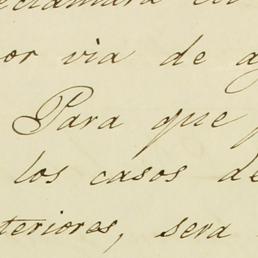 or via de a
Para que
los casos de
teriores, sera